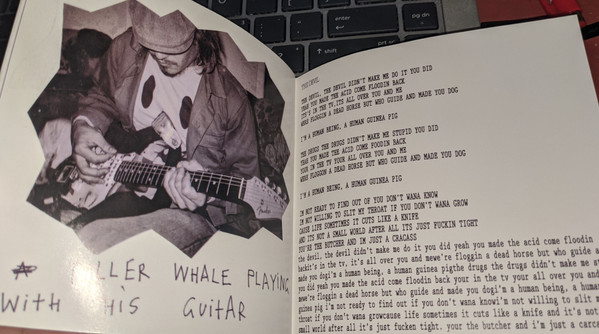 LLER WHALE PLAYING
WITH HIS GUITAR
enter
pg dn
shift
prt sc
THE DEVIL, THE DEVIL DIDN'T MAKE ME DO IT YOU DID
YOU MADE THE ACID COME FLOODIN BACK
IT'S IN THE TV.ITS ALL OVER YOU AND ME
WERE FLOGGIN A DEAD HORSE BUT WHO GUIDE AND MADE YOU DOG
I'M A HUMAN BEING, A HUMAN GUINEA PIG
THE DRUGS THE DRUGS DIDN'T MAKE ME STUPID YOU DID
YOU MADE THE ACID COME FLOODIN BACK
YOUR IN THE TV YOUR ALL OVER YOU AND ME
WERE FLOGGIN A DEAD HORSE BUT WHO GUIDE AND MADE YOU DOG
I'M A HUMAN BEING, A HUMAN GUINEA PIG
IM NOT READY TO FIND OUT OF YOU DON'T WANA KNOW
IM NOT WILLING TO SLIT MY THROAT IF YOU DON'T WANA GROW
CAUSE LIFE SOMETIMES IT CUTS LIKE A KNIFE
AND ITS NOT A SMALL WORLD AFTER ALL ITS JUST FUCKIN TIGHT
YOU'RE THE BUTCHER AND IM JUST A CRACASS
the devil, the devil didn't make me do it you did yeah you made the acid come floodin
backit's in the tv. it's all over you and mewe're floggin a dead horse but who guide a
made you dogi'm a human being, a human guinea pigthe drugs the drugs didn't make me st
you did yeah you made the acid come floodin back your in the tv your all over you and
mewe're floggin a dead horse but who guide and made you dogi'm a human being, a human
guinea pig i'm not ready to find out if you don't wana knowi'm not willing to slit m
throat if you don't wana growcause life sometimes it cuts like a knife and it's not
small world after all it's just fucken tight. your the butcher and i'm just a carca